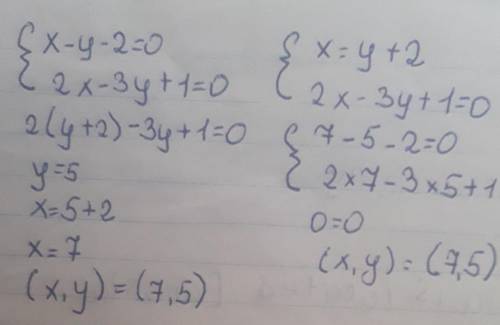 x-y-2=0
2x-3y+1=0
2(y+2)-3y+1=0
y=5
x=5+2
x=7
(x,y)=(7,5)
x=y+2
2x-3y+1=0
7-5-2=0
2×7-3×5+1
0=0
(x,y)=(7,5)